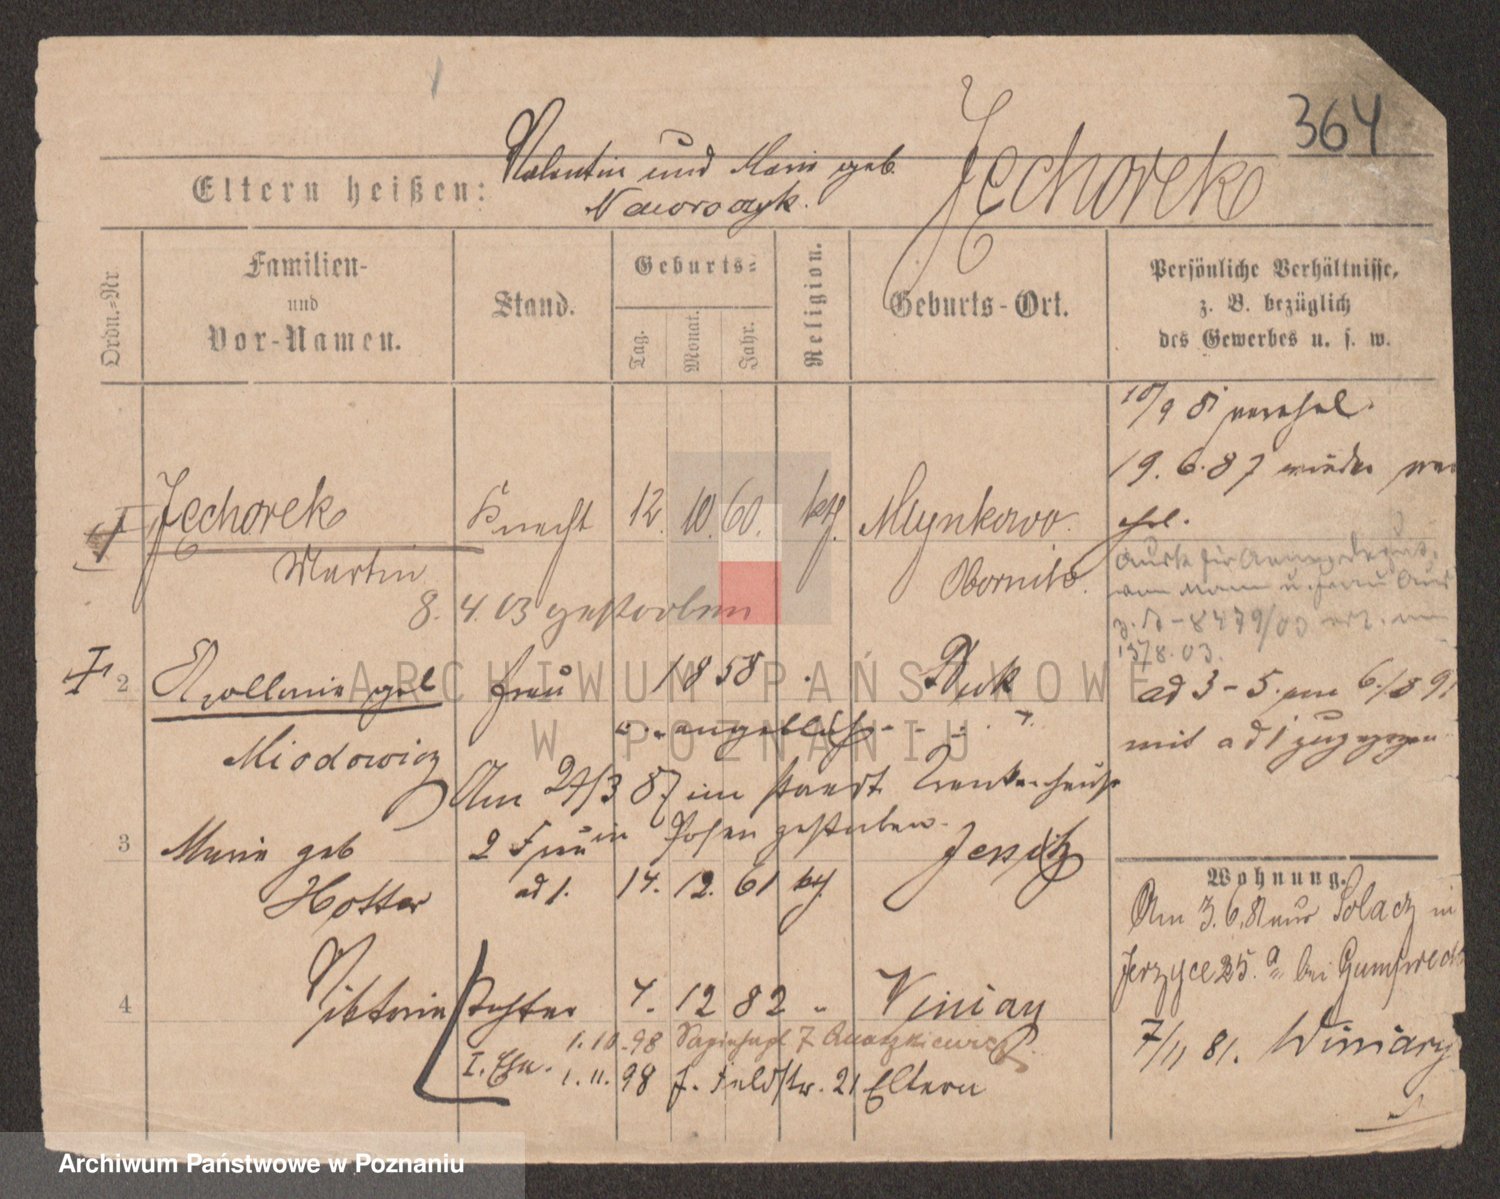 364
Jechorek
Eltern heißen: Valentin und Marie geb.
Nawroczyk.
Ordn.-Nr
Familien-
und
Vor-Namen.
Stand.
Geburts-
Tag.
Monat.
Jahr.
Religion.
Geburts-Ort.
Persönliche Verhältnisse,
z. B. bezüglich
des Gewerbes u. s. w.
10/9 81 verehel.
19. 6. 87 wieder ver
ehel.
Jechorek Knecht 12. 10. 60. kth. Mlynkowo
Martin Obornik
8. 4. 03 gestorben
z. D - 8479/03
13/8. 03.
2 Apollonia geb Frau 1858 Buk
angeblich
Miodowicz
ad 3-5. am 6/8 91
mit ad 1 zugezogen
Am 24/3 87 im Stadt Krankenhause
in Posen gestorben.
3 Marie geb 2 Frau Jersitz
Hotter ad 1. 14. 12. 61 kth.
Wohnung.
Am 3. 6. 81 aus Solacz in
Jerzyce 25. a bei
7/11 81. Winiary
4 Viktoria Tochter 4. 12 82 " Winiary
1. 10. 98
I. Ehe. 1. 11. 98 J. Feldstr. 21 Eltern
ARCHIWUM PAŃSTWOWE
W POZNANIU
Archiwum Państwowe w Poznaniu